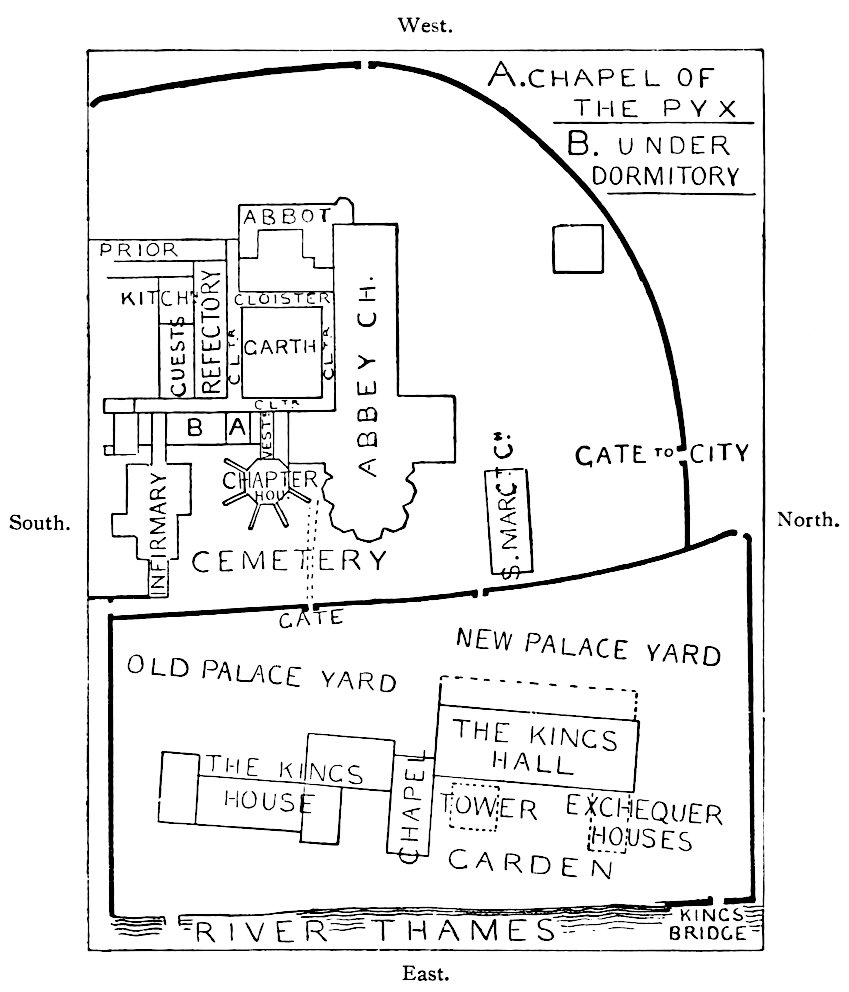 West.
A. CHAPEL OF
THE PYX
B. UNDER
DORMITORY
ABBOT
PRIOR
KITCHN
CLOISTER
REFECTORY
GUESTS
CLTR
GARTH
CLTR
ABBEY CH.
CLTR
B
A
VESTE
CHAPTER
HOU.
S. MARGT CH.
GATE TO CITY
South.
North.
INFIRMARY
CEMETERY
GATE
NEW PALACE YARD
OLD PALACE YARD
THE KINGS
HALL
THE KINGS
HOUSE
CHAPEL
TOWER
EXCHEQUER
HOUSES
GARDEN
RIVER THAMES
KINGS
BRIDGE
East.